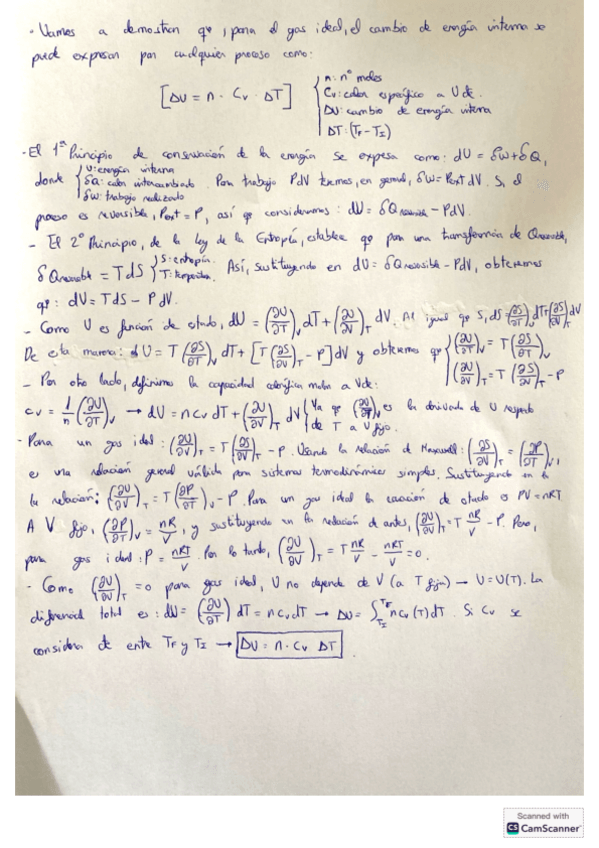 - Vamos a demostrar qe, para el gas ideal, el cambio de energía interna se
puede expresar por cualquier proceso como:
[ΔU = n · Cv · ΔT] { n: nº moles
Cv: calor específico a V cte.
ΔU: cambio de energía interna
ΔT: (TF - TI)
- El 1er Principio de conservación de la energía se expresa como: dU = δW + δQ,
donde { U: energía interna
δQ: calor intercambiado. Para trabajo PdV tenemos, en general, δW = Pext dV. Si el
δW: trabajo realizado
proceso es reversible, Pext = P, así qe consideramos: dU = δQreversible - PdV.
- El 2º Principio, de la ley de la Entropía, establece qe para una transferencia de Qreversible,
δQreversible = TdS { S: entropía.
T: temperatura. Así, sustituyendo en dU = δQreversible - PdV, obtenemos
qe: dU = TdS - PdV.
- Como U es función de estado, dU = (∂U/∂T)V dT + (∂U/∂V)T dV. Al igual qe S, dS = (∂S/∂T)V dT + (∂S/∂V)T dV
De esta manera: dU = T (∂S/∂T)V dT + [T (∂S/∂V)T - P] dV y obtenemos qe { (∂U/∂T)V = T (∂S/∂T)V
(∂U/∂V)T = T (∂S/∂V)T - P
- Por otro lado, definimos la capacidad calorífica molar a V cte:
cv = 1/n (∂U/∂T)V → dU = n cv dT + (∂U/∂V)T dV { Ya qe (∂U/∂T)V es la derivada de U respecto
de T a V fijo.
- Para un gas ideal: (∂U/∂V)T = T (∂S/∂V)T - P. Usando la relación de Maxwell: (∂S/∂V)T = (∂P/∂T)V,
es una relación general válida para sistemas termodinámicos simples. Sustituyendo en la
la relación: (∂U/∂V)T = T (∂P/∂T)V - P. Para un gas ideal la ecuación de estado es PV = nRT
A V fijo, (∂P/∂T)V = nR/V, y sustituyendo en la relación de antes, (∂U/∂V)T = T nR/V - P. Pero,
para gas ideal: P = nRT/V. Por lo tanto, (∂U/∂V)T = T nR/V - nRT/V = 0.
- Como (∂U/∂V)T = 0 para gas ideal, U no depende de V (a T fija) → U = U(T). La
diferencial total es: dU = (∂U/∂T) dT = n cv dT → ΔU = ∫TI TF n cv (T) dT. Si Cv se
considera cte entre TF y TI → ΔU = n · Cv ΔT
Scanned with
CS CamScanner